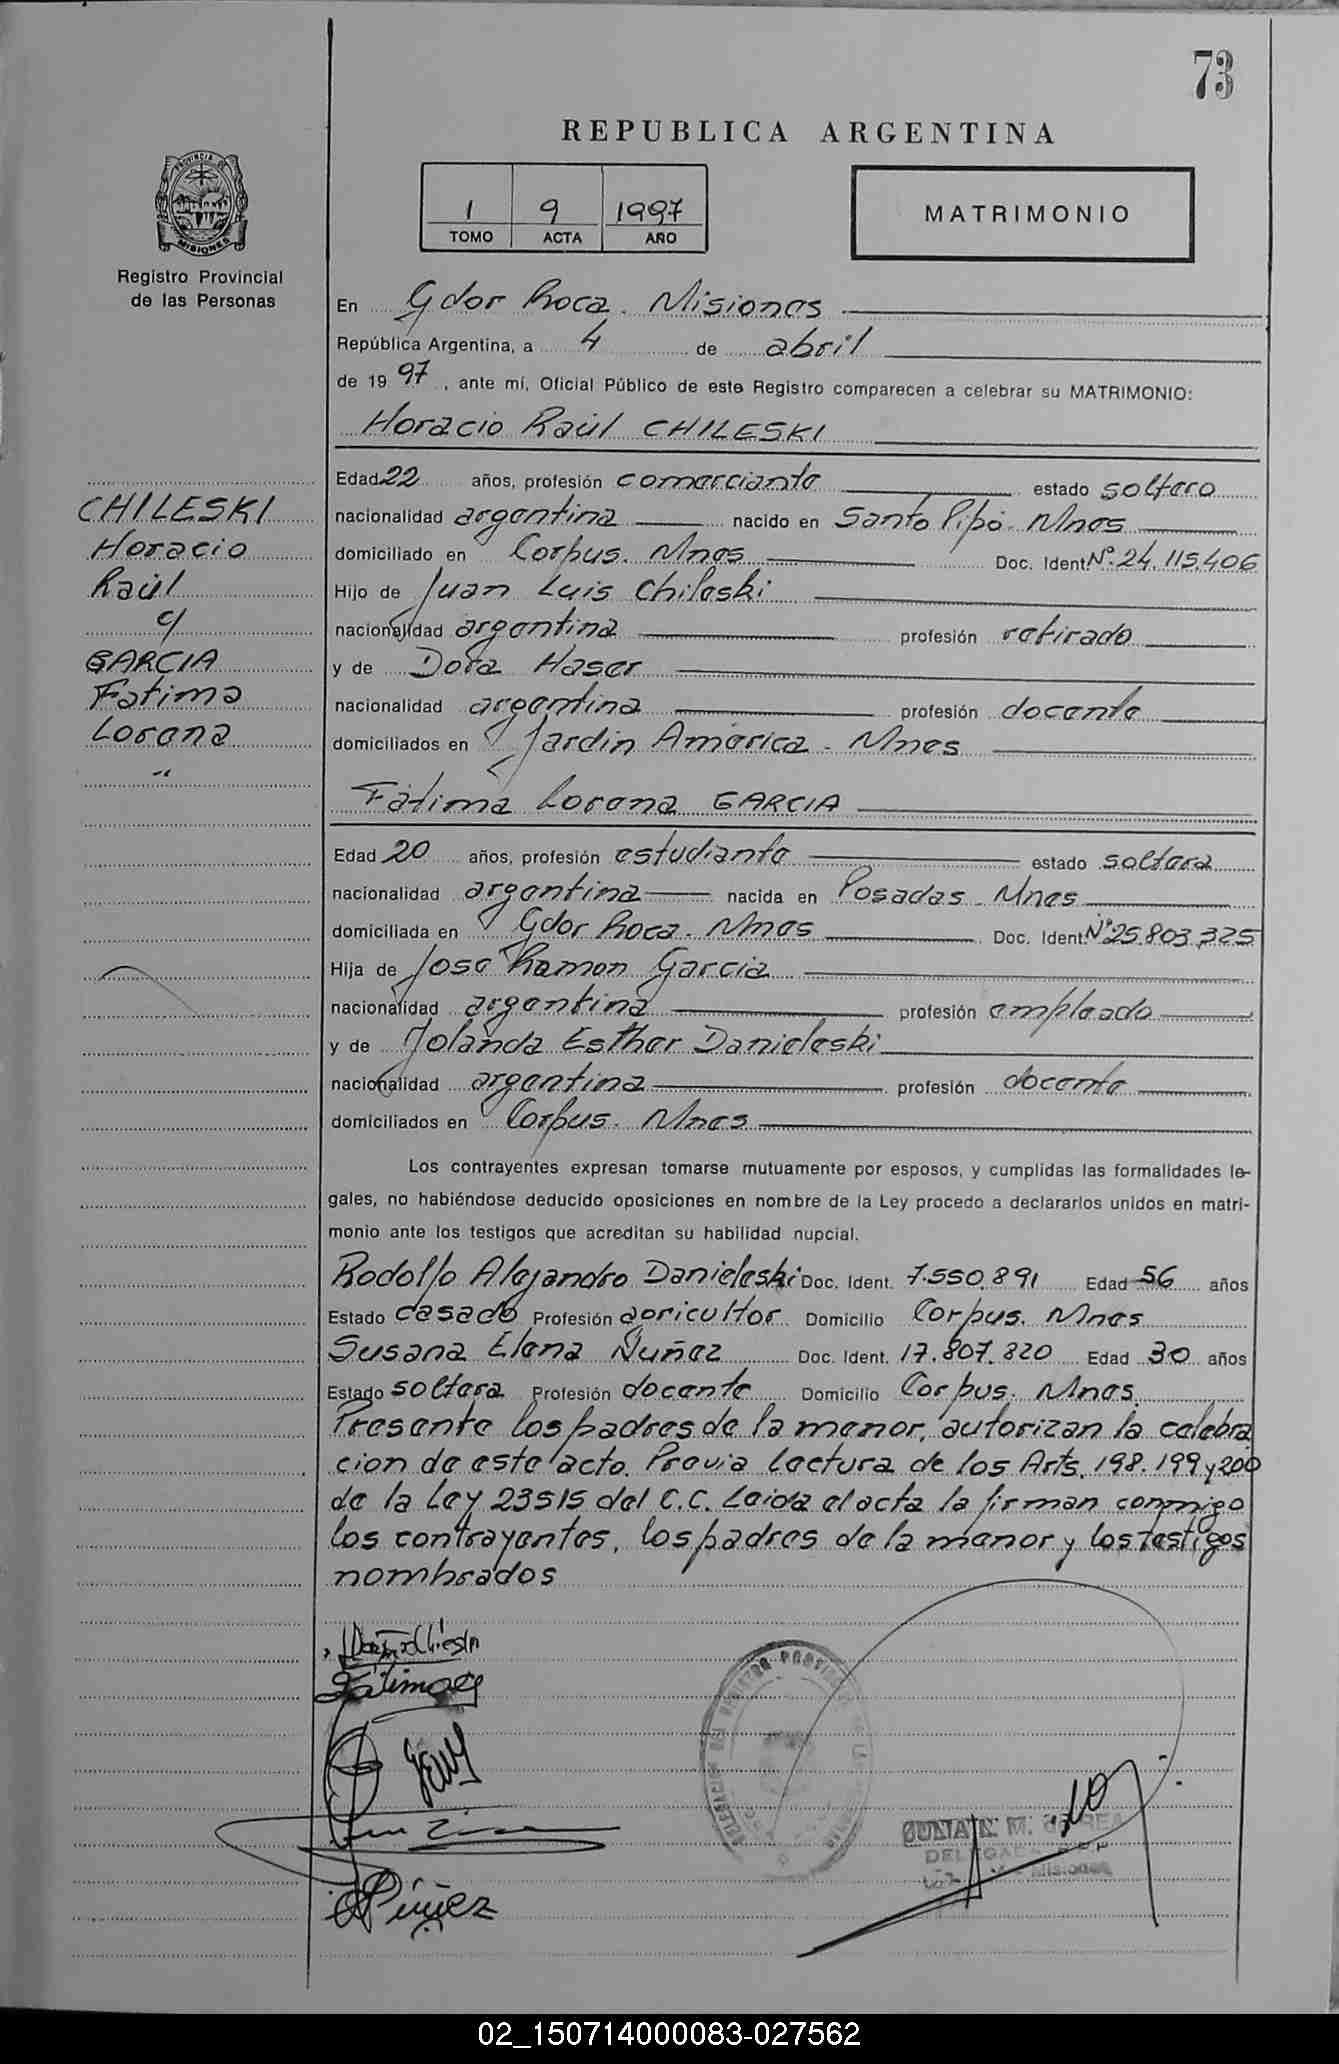 73
REPUBLICA ARGENTINA
1 9 1997
TOMO ACTA AÑO
MATRIMONIO
PROVINCIA DE
MISIONES
Registro Provincial
de las Personas
En Gdor Roca. Misiones
República Argentina, a 4 de abril
de 1997, ante mí, Oficial Público de este Registro comparecen a celebrar su MATRIMONIO:
Horacio Raúl CHILESKI
CHILESKI
Horacio
Raúl
y
GARCIA
Fatima
Lorena
Edad 22 años, profesión comerciante estado soltero
nacionalidad argentina nacido en Santo Pipó. Mnes
domiciliado en Corpus. Mnes Doc. Ident. Nº. 24.115.406
Hijo de Juan Luis Chileski
nacionalidad argentina profesión retirado
y de Dora Haser
nacionalidad argentina profesión docente
domiciliados en Jardin America - Mnes
Fátima Lorena GARCIA
Edad 20 años, profesión estudiante estado soltera
nacionalidad argentina nacida en Posadas. Mnes
domiciliada en Gdor Roca. Mnes Doc. Ident. Nº 25.803.325
Hija de José Ramon Garcia
nacionalidad argentina profesión empleado
y de Yolanda Esther Danieleski
nacionalidad argentina profesión docente
domiciliados en Corpus. Mnes
Los contrayentes expresan tomarse mutuamente por esposos, y cumplidas las formalidades le-
gales, no habiéndose deducido oposiciones en nombre de la Ley procedo a declararlos unidos en matri-
monio ante los testigos que acreditan su habilidad nupcial.
Rodolfo Alejandro Danieleski Doc. Ident. 7.550.891 Edad 56 años
Estado casado Profesión agricultor Domicilio Corpus. Mnes
Susana Elena Nuñez Doc. Ident. 17.807.820 Edad 30 años
Estado soltera Profesión docente Domicilio Corpus. Mnes.
Presente los padres de la menor, autorizan la celebra
cion de este acto. Previa lectura de los Arts. 198. 199 y 200
de la Ley 23515 del C.C. Leida el acta la firman conmigo
los contrayentes, los padres de la menor y los testigos
nombrados
Nuñez
Misiones
02_150714000083-027562